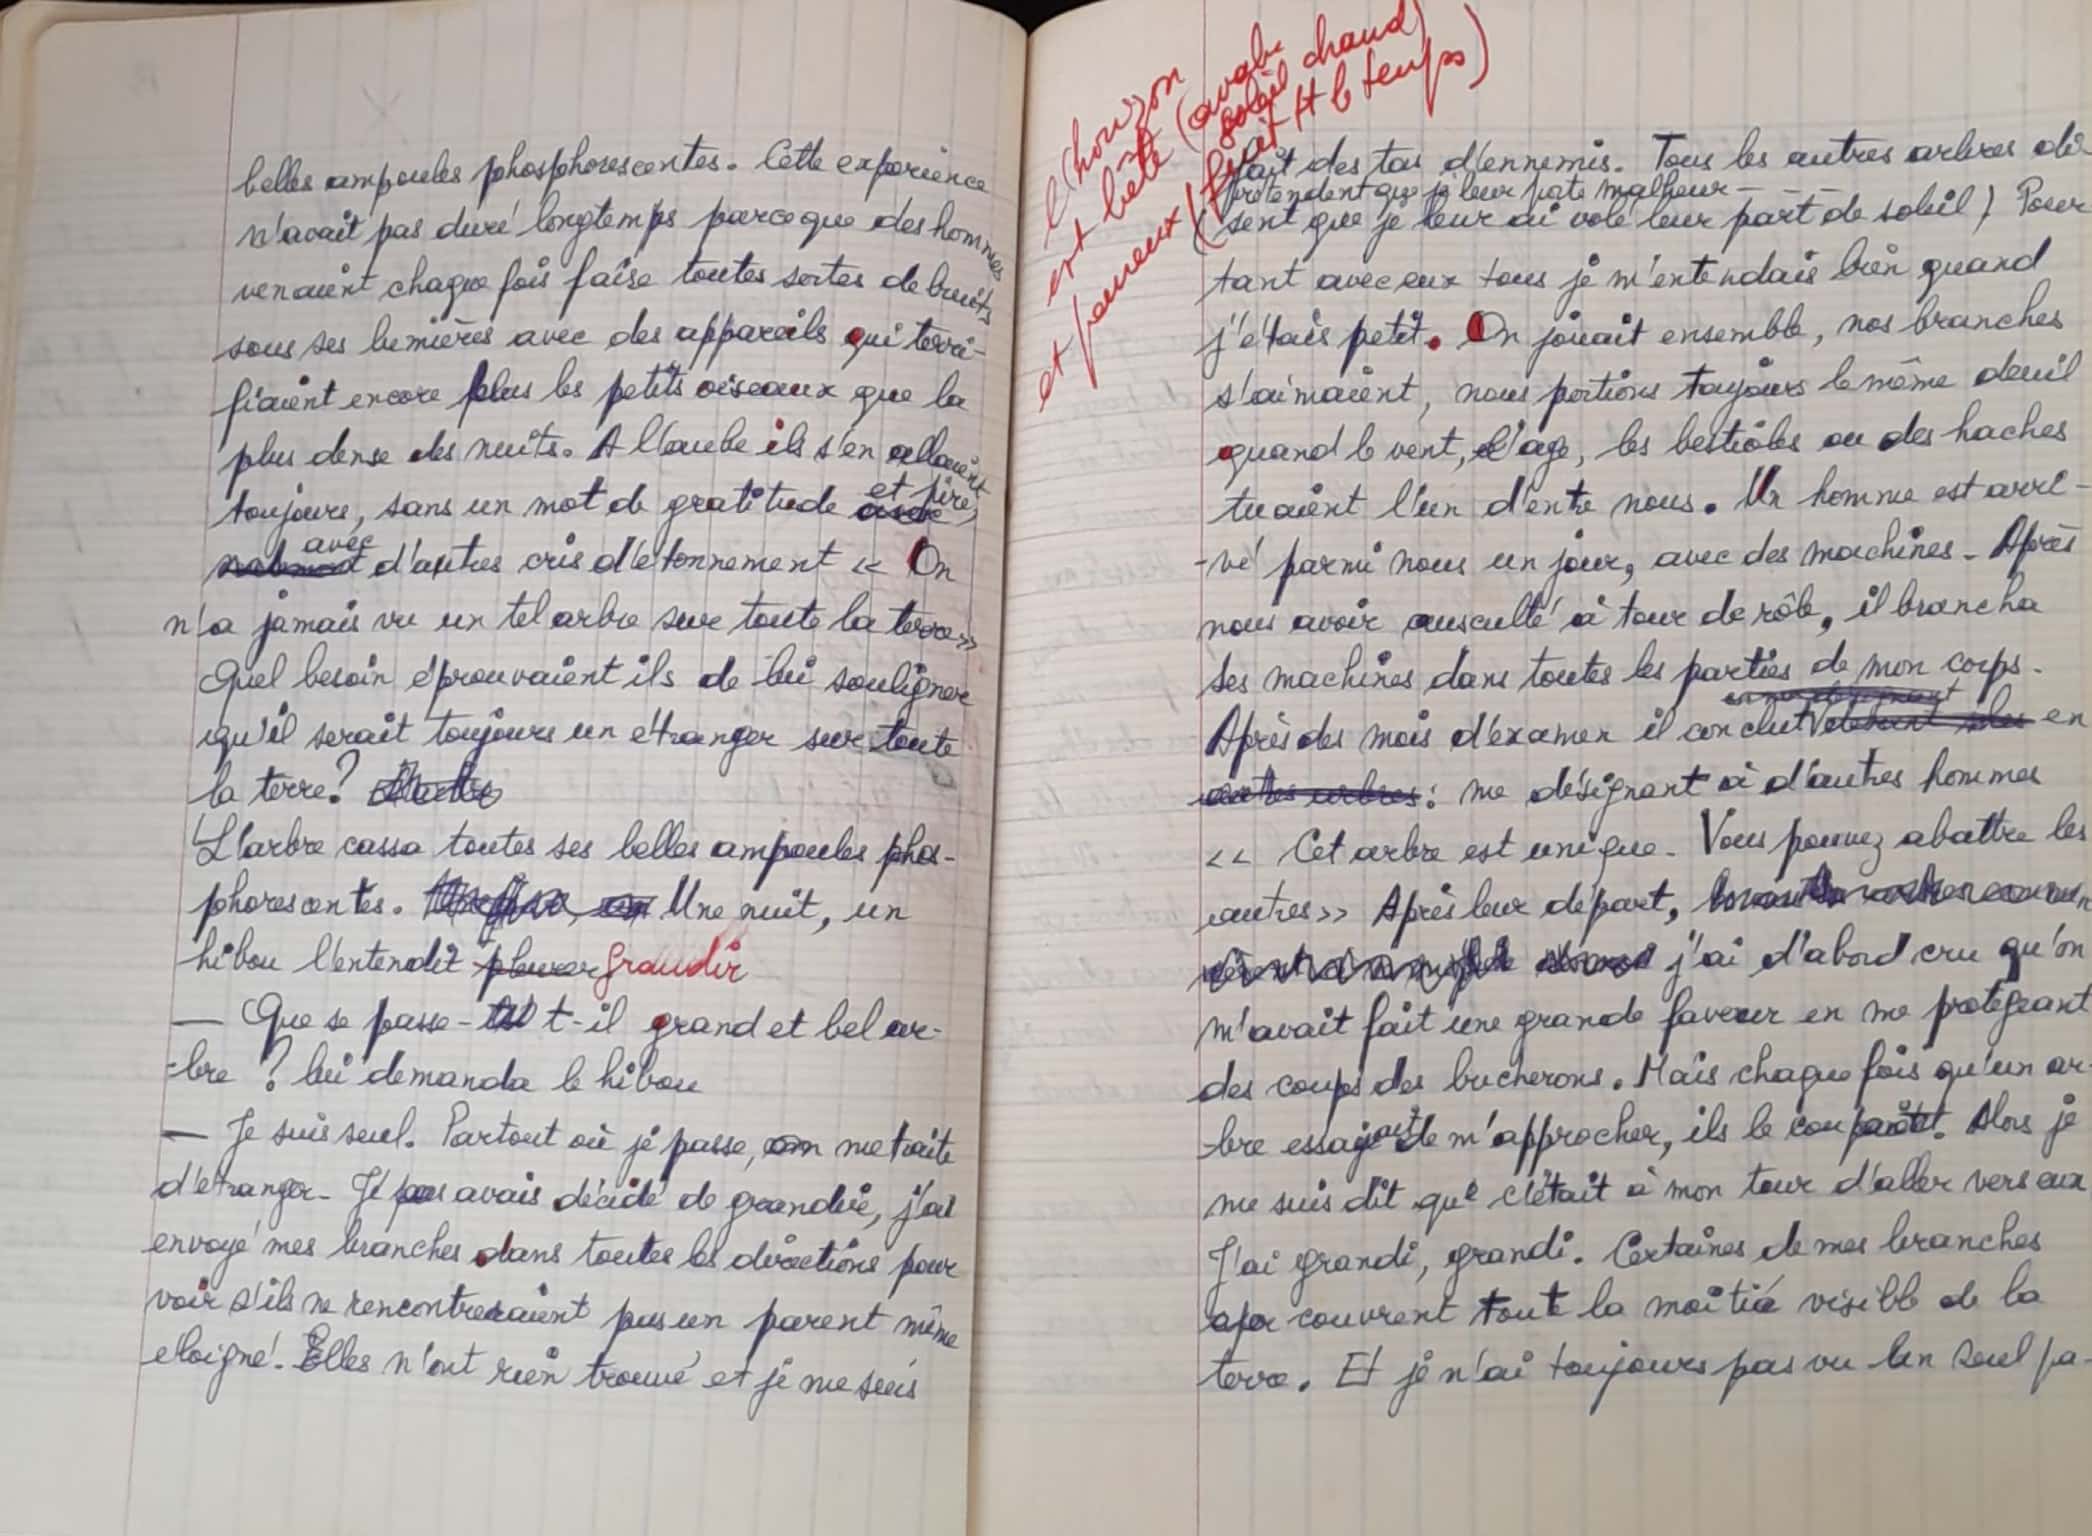 belles ampoules phosphorescentes. Cette expérience
n'avait pas duré longtemps parceque des hommes
venaient chaque fois faire toutes sortes de bruits
sous ses lumières avec des appareils qui terri-
fiaient encore plus les petits oiseaux que la
plus dense des nuits. A l'aube ils s'en allaient
toujours, sans un mot de gratitude et pire,
avec d'autres cris d'étonnement « On
n'a jamais vu un tel arbre sur toute la terre»
Quel besoin éprouvaient ils de lui souligner
qu'il serait toujours un étranger sur toute
la terre?
L'arbre cassa toutes ses belles ampoules phos-
phorescentes. Une nuit, un
hibou l'entendit pleurer Grandir
— Que se passe-t-il grand et bel ar-
-bre ? lui demanda le hibou
— Je suis seul. Partout où je passe, on me traite
d'étranger- J'avais décidé de grandir, j'ai
envoyé mes branches dans toutes les directions pour
voir s'ils ne rencontreraient pas un parent même
éloigné. Elles n'ont rien trouvé et je me suis
l'horizon
est bête (
soleil chaud)
et peureux (fuit tt le temps)
fait des tas d'ennemis. Tous les autres arbres di-
prétendent que je leur porte malheur —
(sent que je leur ai volé leur part de soleil) Pour
tant avec eux tous je m'entendais bien quand
j'étais petit. On jouait ensemble, nos branches
s'aimaient, nous portions toujours le même deuil
quand le vent, l'age, les bestioles ou des haches
tuaient l'un d'entre nous. Un homme est arri-
-vé parmi nous un jour, avec des machines- Après
nous avoir ausculté à tour de rôle, il brancha
ses machines dans toutes les parties de mon corps-
Après des mois d'examen il conclut en
autres arbres: me désignant à d'autres hommes
« Cet arbre est unique- Vous pouvez abattre les
autres» Après leur départ,
j'ai d'abord cru qu'on
m'avait fait une grande faveur en me protégeant
des coups des bucherons. Mais chaque fois qu'un ar-
bre essayait de m'approcher, ils le coupaient. Alors je
me suis dit que c'était à mon tour d'aller vers eux
J'ai grandi, grandi. Certaines de mes branches
couvrent toute la moitié visible de la
terre. Et je n'ai toujours pas vu un seul pa-